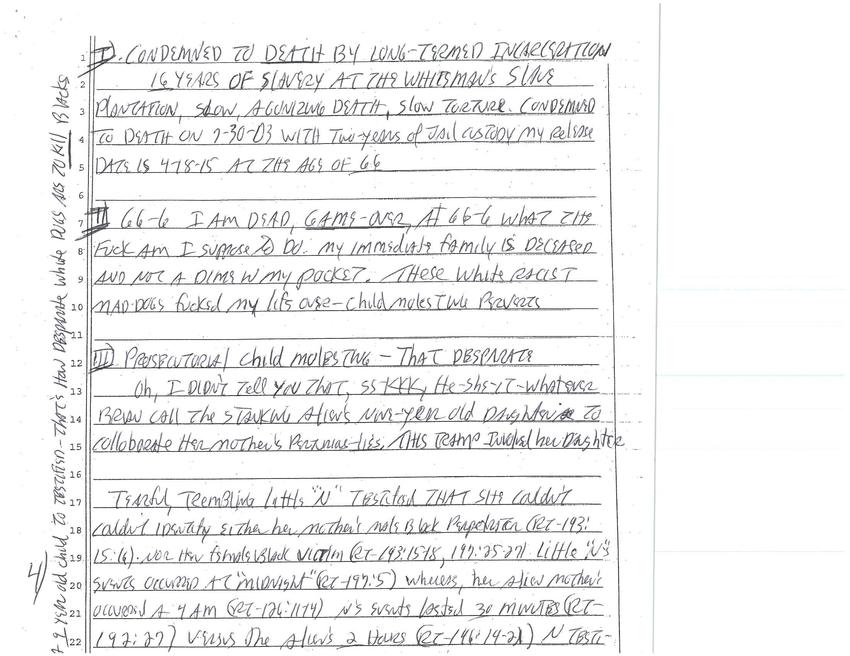 I). CONDEMNED TO DEATH BY LONG-TERMED INCARCERATION
16 YEARS OF SLAVERY AT THE WHITEMAN'S SLAVE
PLANTATION, SLOW, AGONIZING DEATH, SLOW TORTURE. CONDEMNED
TO DEATH ON 7-30-03 WITH TWO-years of JAIL CUSTODY my RELEASE
DATE IS 4-18-15 AT THE AGE OF 66
II 66-6 I AM DEAD, GAME-OVER, AT 66-6 WHAT THE
FUCK AM I SUPPOSE TO DO. my immediate family IS DECEASED
AND NOT A DIME IN my POCKET. THESE White RACIST
MAD-DOGS fucked my life over- child molesting Perverts
III). PROSECUTORIAL child molesting - THAT DESPARATE
Oh, I DIDN'T Tell YOU THAT, SS-KKK, He-she-it-whatever
BRIAN CALL The STANKING ALIEN'S NINE-year old Daughter to
collaborate Her mother's Perjuries-lies, THIS TRAMP Involved her Daughter
Tearful, Trembling little "N" TESTIFIED THAT SHE couldn't
couldn't IDENTIFY EITHER her mother's male Black Perpetrator (RT-193:
15:16). NOR Her female Black victim (RT-193:15-18, 197:25-27) Little "N's
EVENTS OCCURRED AT "MIDNIGHT" (RT-197:5) whereas, her Alien mother's
occurred A 4 AM (RT-126:11-14) N's Events lasted 30 MINUTES (RT-
192:27) VERSUS The Alien's 2 Hours (RT-146:14-21) N TESTI-
A 9 YEAR old child TO TESTIFIED- THAT'S How DESPARATE White DOGS ARE TO KILL Blacks
4)
1
2
3
4
5
6
7
8
9
10
11
12
13
14
15
16
17
18
19
20
21
22